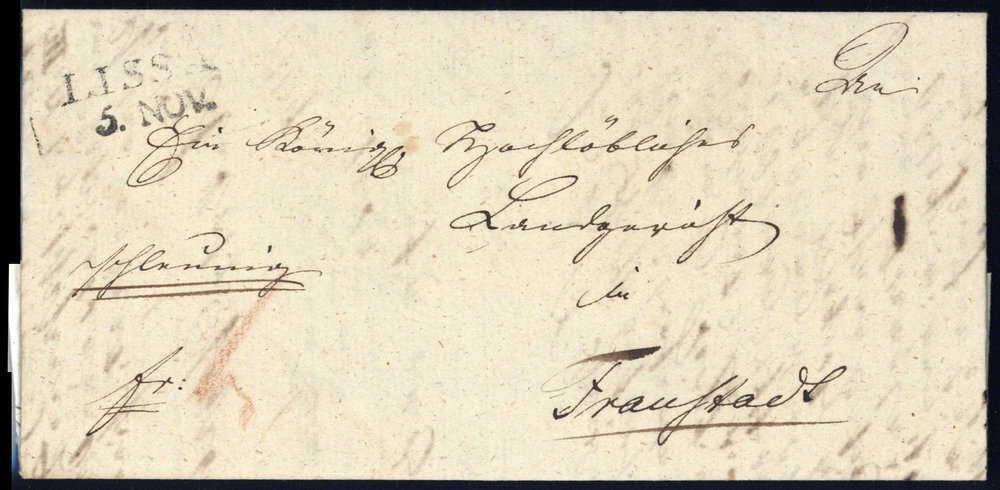 LISSA
5. NOV.
An
Ein Königl Hochlöbliches
Landgericht
in
Fraustadt
schleunig
fr: